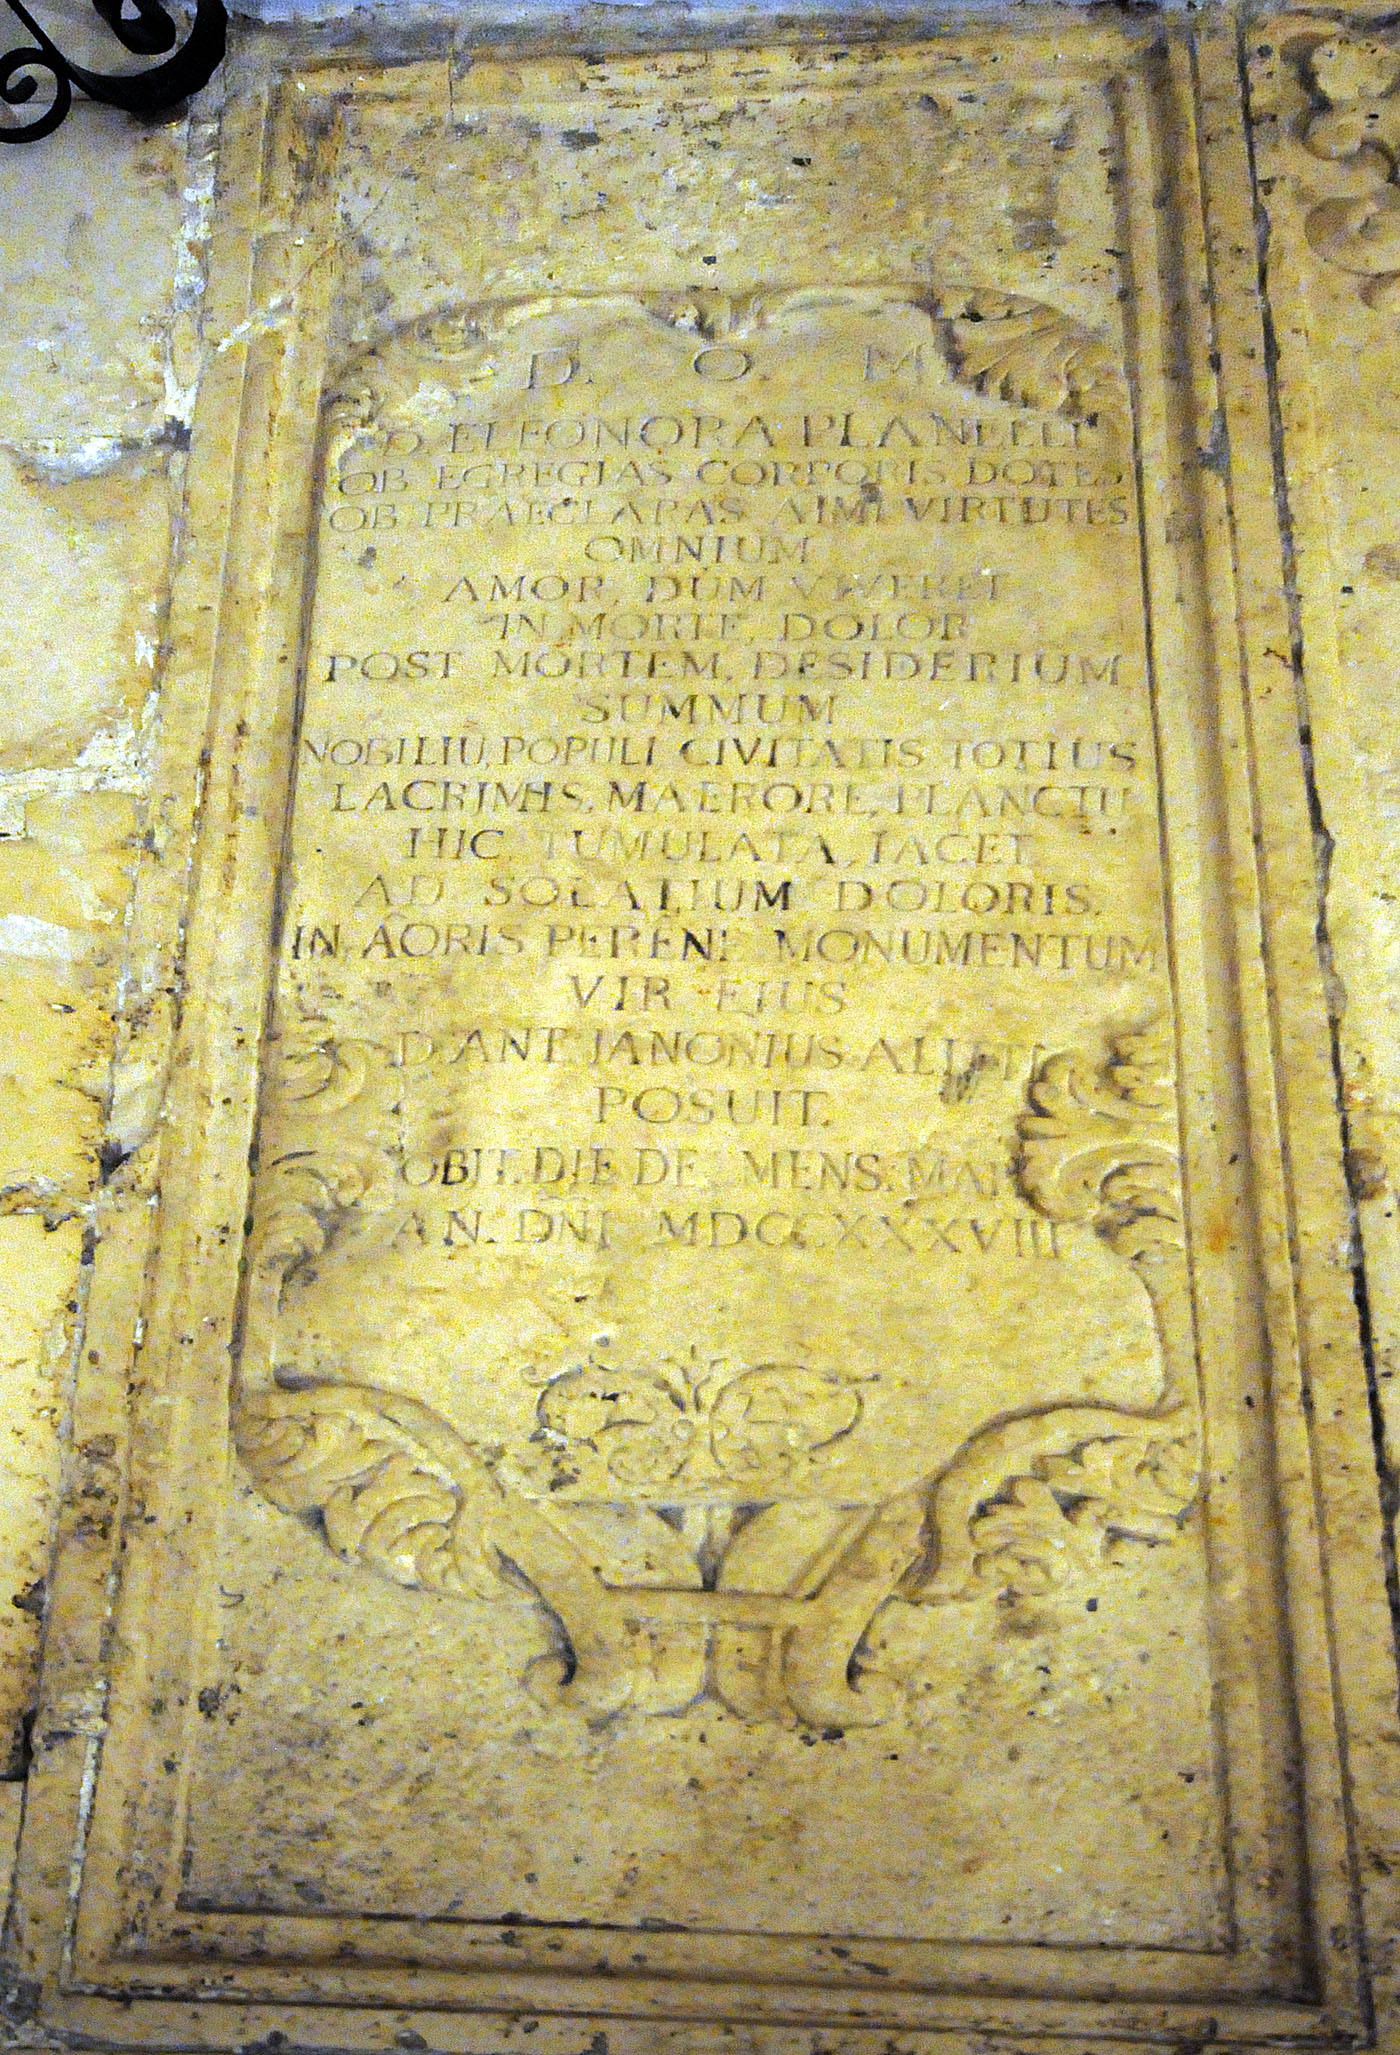 D. O. M.
D. ELEONORA PLANELLI
OB EGREGIAS CORPORIS DOTES
OB PRAECLARAS AIMI VIRTUTES
OMNIUM
AMOR, DUM VIVERET
IN MORTE, DOLOR
POST MORTEM, DESIDERIUM
SUMMUM
NOBILIU, POPULI, CIVITATIS TOTIUS
LACRIMIS, MAERORE, PLANCTU
HIC TUMULATA, IACET
AD SOLATIUM DOLORIS.
IN AÔORIS PERÊNE MONUMENTUM
VIR EJUS
D. ANT. IANONIUS
POSUIT.
OBIT. DIE DE. MENS. MAI
AN. DNI MDCCXXXVIII